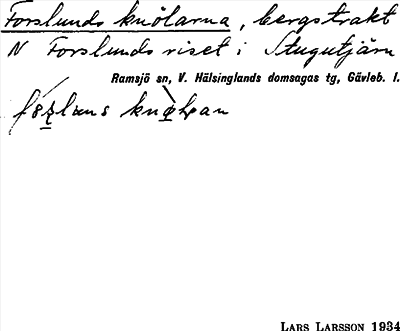 Forslunds knölarna, bergstrakt
N Forslundsriset i Stugutjärn
Ramsjö sn, V. Hälsinglands domsagas tg, Gävleb. l.
LARS LARSSON 1934